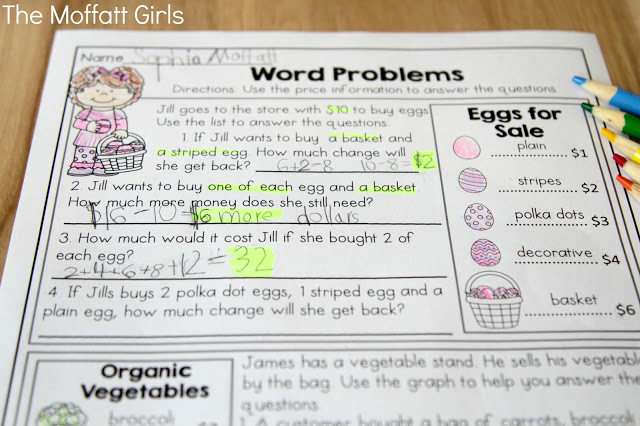 The Moffatt Girls
Name Sophia Moffatt
Word Problems
Directions: Use the price information to answer the questions.
Jill goes to the store with $10 to buy eggs.
Use the list to answer the questions.
1. If Jill wants to buy a basket and
a striped egg. How much change will
she get back? 6+2=8 10-8=$2
2. Jill wants to buy one of each egg and a basket.
How much more money does she still need?
$16-10=$6 more dollars
3. How much would it cost Jill if she bought 2 of
each egg?
2+4+6+8+12=32
4. If Jills buys 2 polka dot eggs, 1 striped egg and a
plain egg, how much change will she get back?
Eggs for
Sale
plain
$1
stripes
$2
polka dots
$3
decorative
$4
basket
$6
Organic
Vegetables
broccoli
James has a vegetable stand. He sells his vegetabl
by the bag. Use the graph to help you answer the
questions.
1. A customer bought a bag of carrots, broccoli